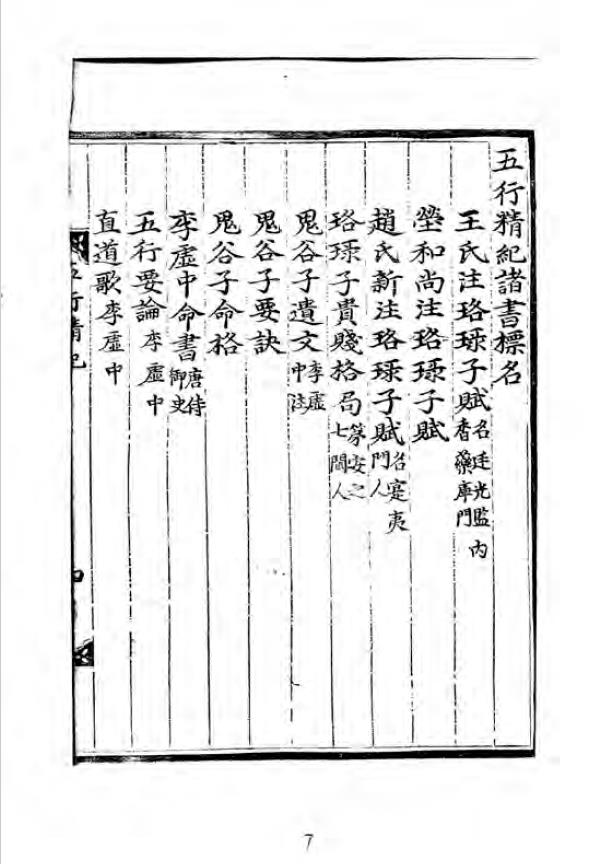 五行精紀諸書標名
王氏注珞琭子賦 名廷光監內香藥庫門
瑩和尚注珞琭子賦
趙氏新注珞琭子賦 名寔夷門人
珞琭子貴賤格局 篆安之七閩人
鬼谷子遺文 李虛中注
鬼谷子要訣
鬼谷子命格
李虛中命書 唐侍御史
五行要論 李虛中
直道歌 李虛中
五行精紀
四
7